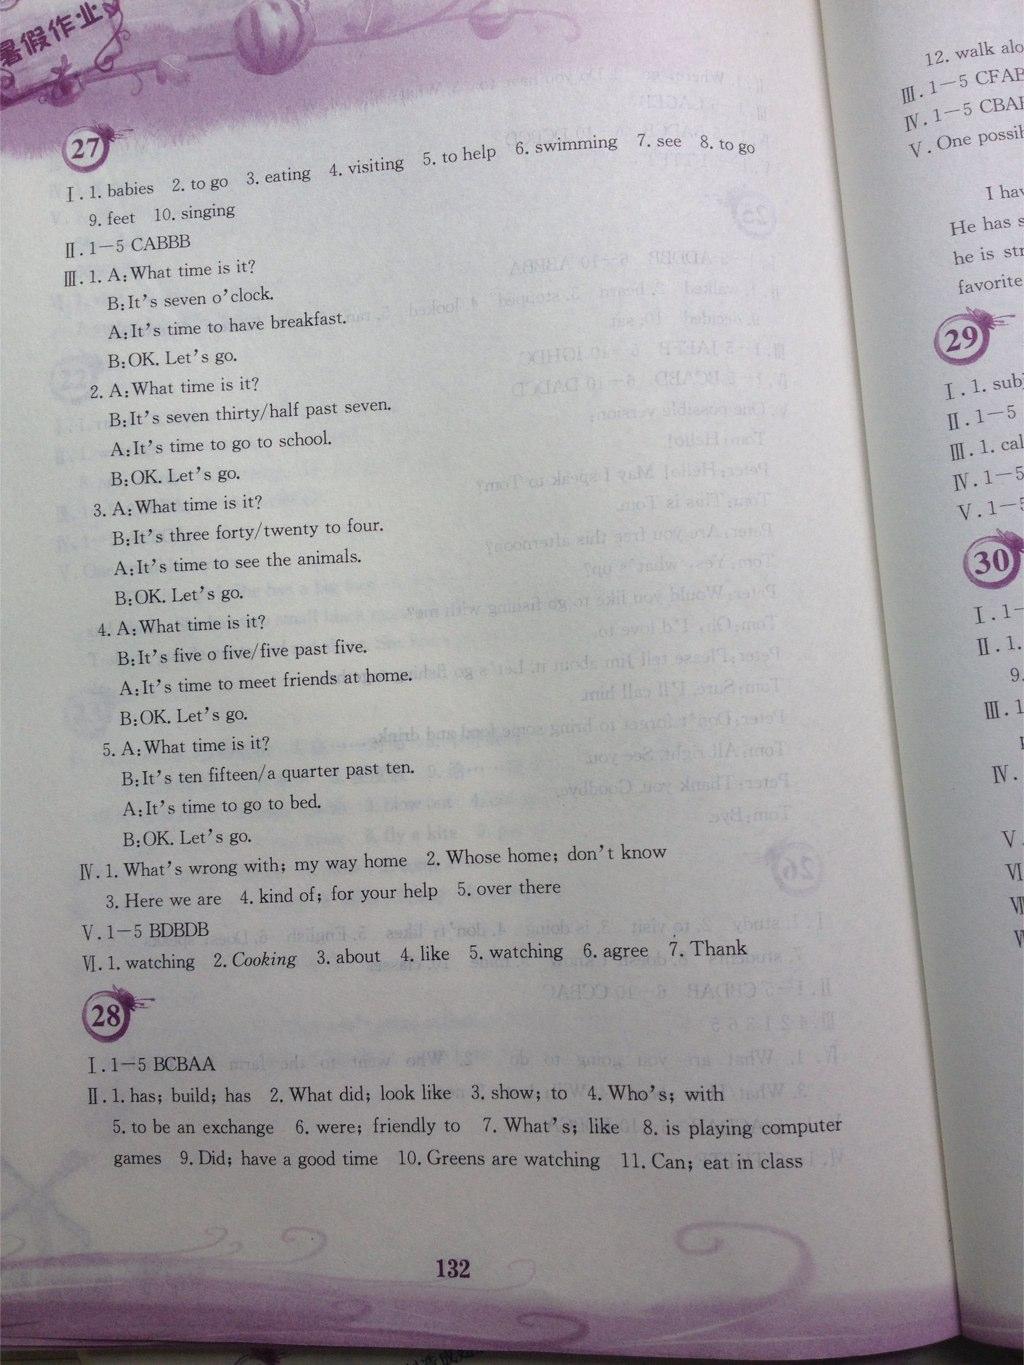 暑假作业
27
Ⅰ. 1. babies 2. to go 3. eating 4. visiting 5. to help 6. swimming 7. see 8. to go
9. feet 10. singing
Ⅱ. 1-5 CABBB
Ⅲ. 1. A: What time is it?
B: It's seven o'clock.
A: It's time to have breakfast.
B: OK. Let's go.
2. A: What time is it?
B: It's seven thirty/half past seven.
A: It's time to go to school.
B: OK. Let's go.
3. A: What time is it?
B: It's three forty/twenty to four.
A: It's time to see the animals.
B: OK. Let's go.
4. A: What time is it?
B: It's five o five/five past five.
A: It's time to meet friends at home.
B: OK. Let's go.
5. A: What time is it?
B: It's ten fifteen/a quarter past ten.
A: It's time to go to bed.
B: OK. Let's go.
Ⅳ. 1. What's wrong with; my way home 2. Whose home; don't know
3. Here we are 4. kind of; for your help 5. over there
Ⅴ. 1-5 BDBDB
Ⅵ. 1. watching 2. Cooking 3. about 4. like 5. watching 6. agree 7. Thank
28
Ⅰ. 1-5 BCBAA
Ⅱ. 1. has; build; has 2. What did; look like 3. show; to 4. Who's; with
5. to be an exchange 6. were; friendly to 7. What's; like 8. is playing computer
games 9. Did; have a good time 10. Greens are watching 11. Can; eat in class
132
12. walk alo
Ⅲ. 1-5 CFAB
Ⅳ. 1-5 CBA
Ⅴ. One possib
I hav
He has s
he is str
favorite
29
Ⅰ. 1. sub
Ⅱ. 1-5
Ⅲ. 1. cal
Ⅳ. 1-5
Ⅴ. 1-5
30
Ⅰ. 1-
Ⅱ. 1.
9.
Ⅲ. 1
Ⅳ.
Ⅴ.
Ⅵ